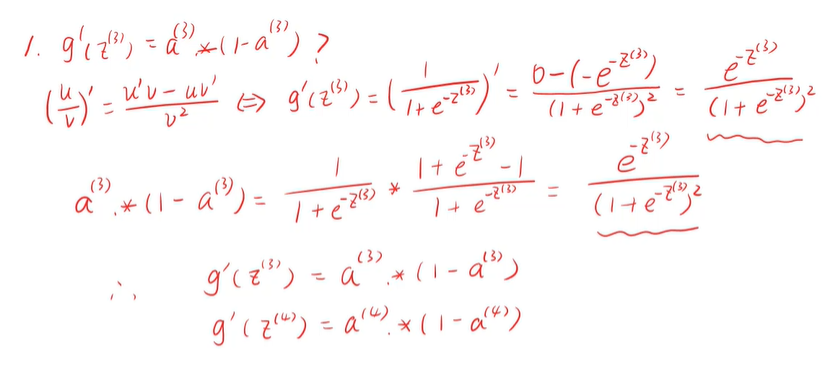 1. g'(z^{(3)}) = a^{(3)}.*(1-a^{(3)}) ?
(\frac{u}{v})' = \frac{u'v - uv'}{v^2} ⇔ g'(z^{(3)}) = (\frac{1}{1+e^{-z^{(3)}}})' = \frac{0-(-e^{-z^{(3)}})}{(1+e^{-z^{(3)}})^2} = \frac{e^{-z^{(3)}}}{(1+e^{-z^{(3)}})^2}
a^{(3)}.*(1-a^{(3)}) = \frac{1}{1+e^{-z^{(3)}}} * \frac{1+e^{-z^{(3)}}-1}{1+e^{-z^{(3)}}} = \frac{e^{-z^{(3)}}}{(1+e^{-z^{(3)}})^2}
∴ g'(z^{(3)}) = a^{(3)}.*(1-a^{(3)})
g'(z^{(4)}) = a^{(4)}.*(1-a^{(4)})